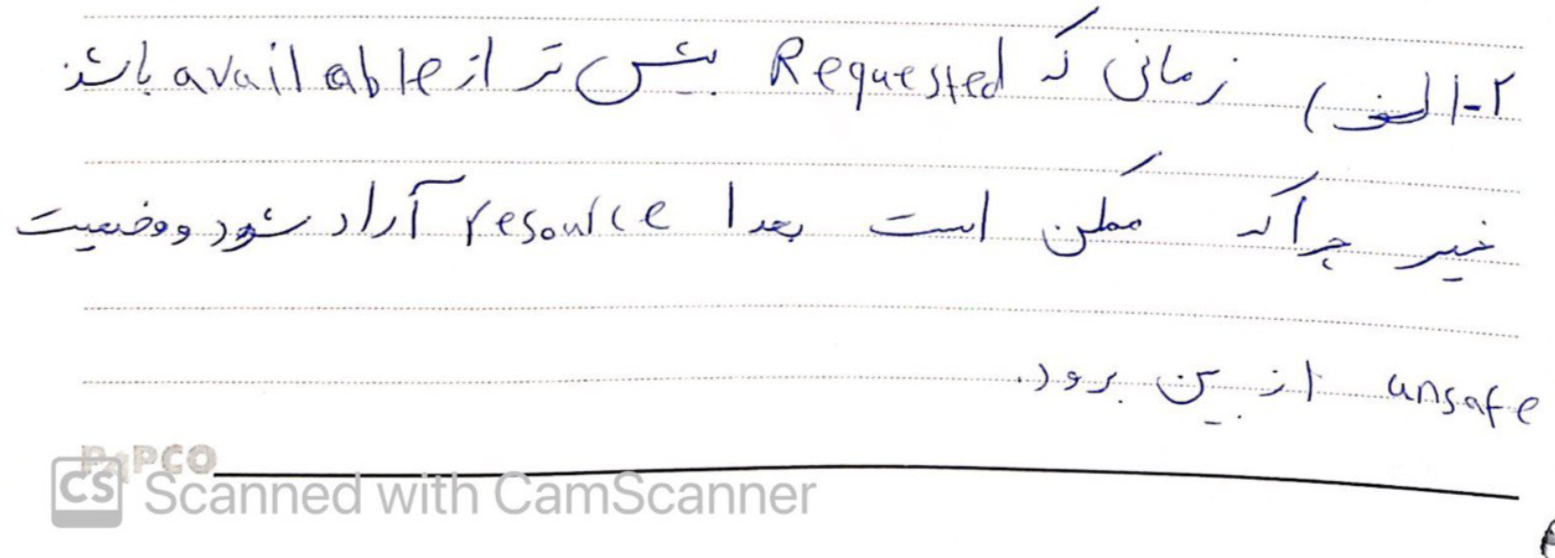 ۲-الف) زمانی که Requested بیش تر از available باشد
خیر چرا که ممکن است بعدا resource آزاد شود و وضعیت
unsafe از بین برود.
PAPCO
CS Scanned with CamScanner